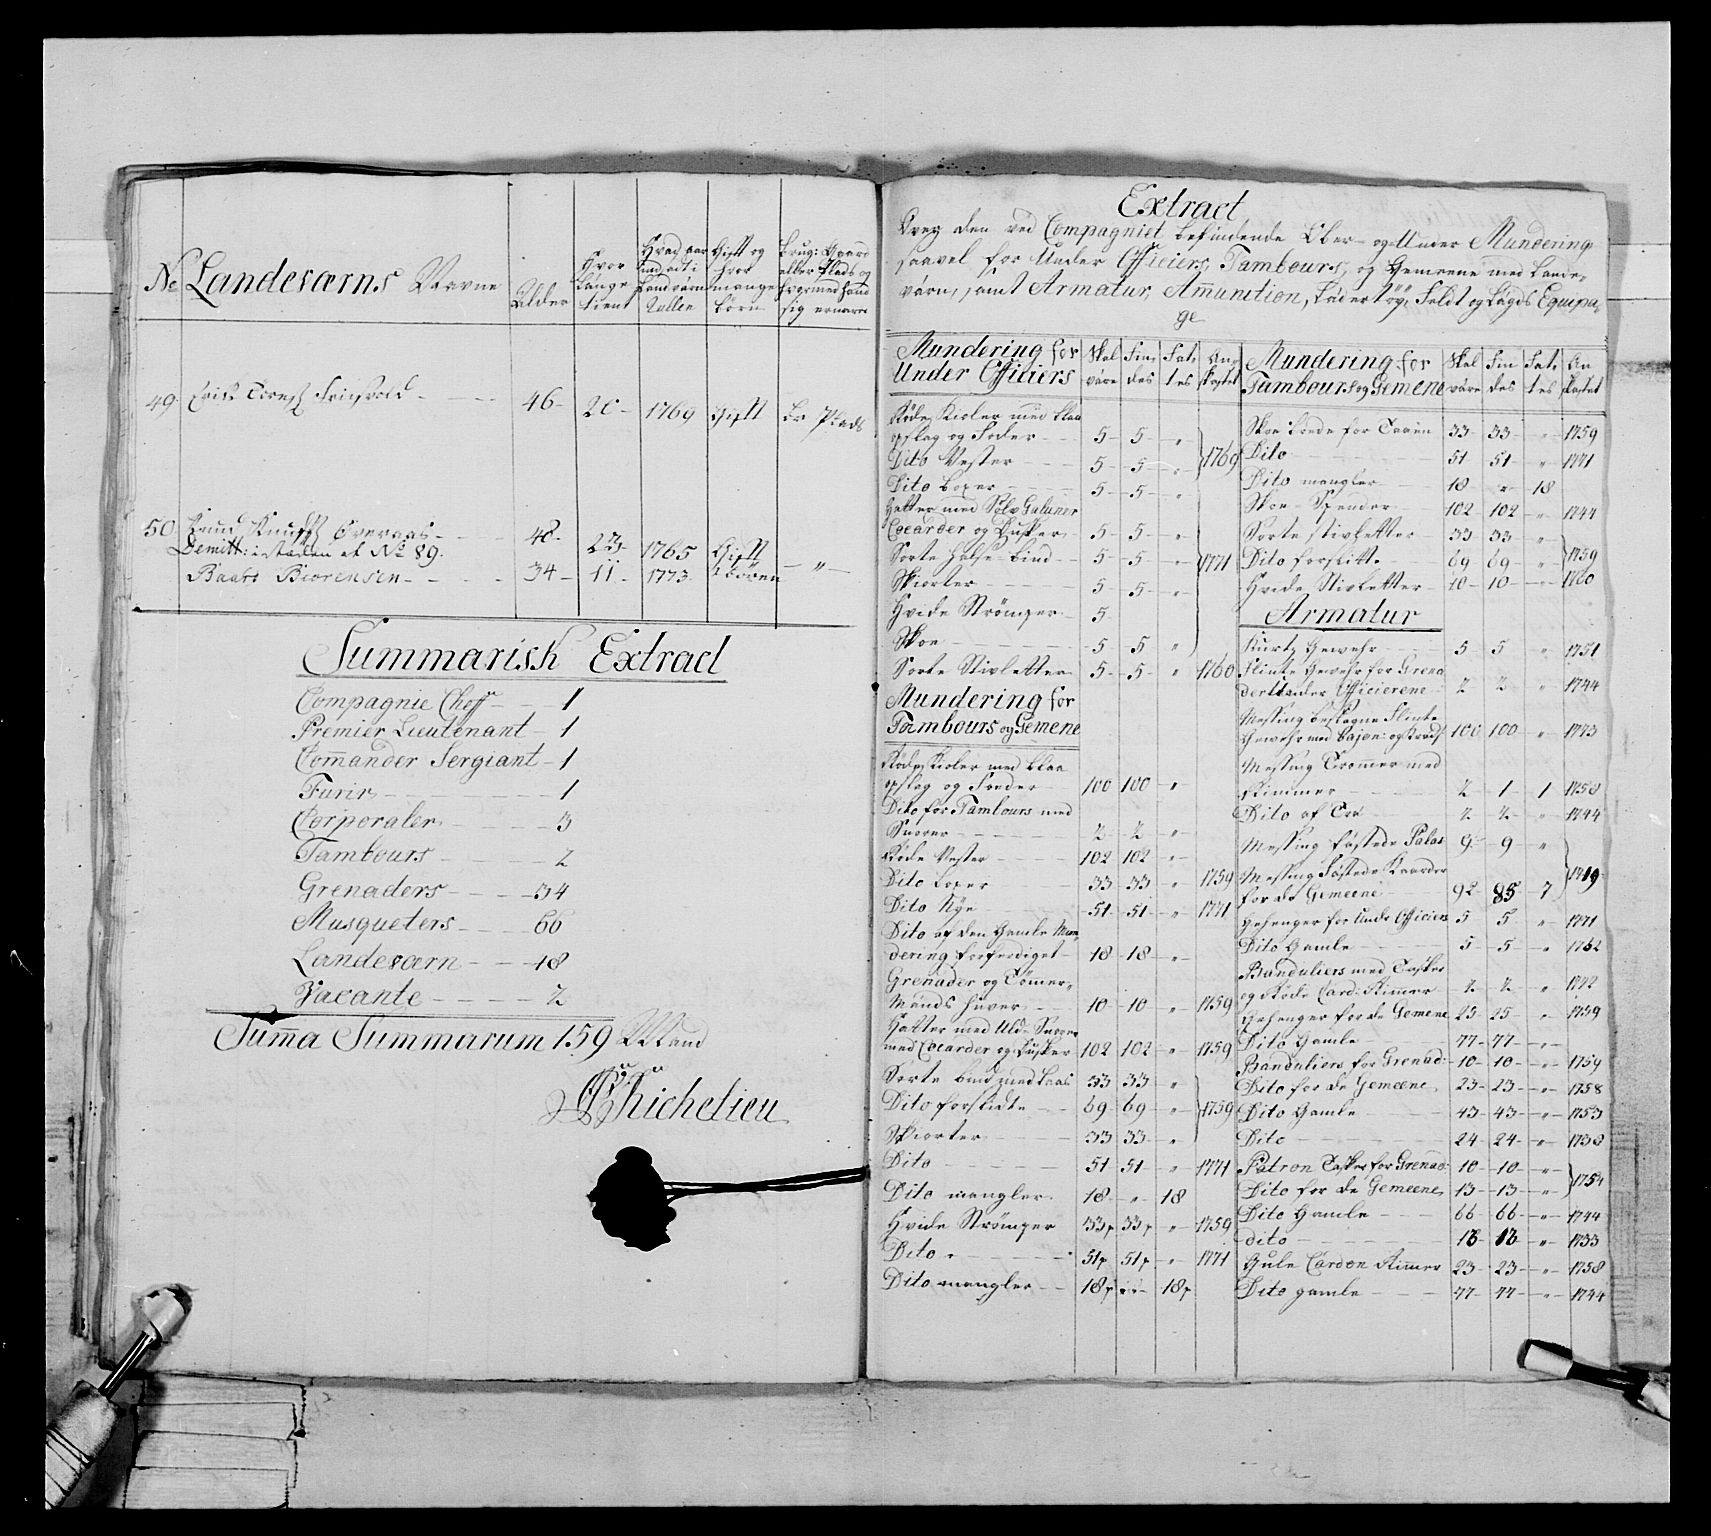 No Landeværns Navne Alder Hvor længe tient Hvad aar indsat i Landværn Rullen Gift og hvor mange børn Brug: Gaard eller Plads og hvormed hand sig ernærer
49 46 20 1769 Gift br Plads
50 Knud Knuds Overaas 48 23 1765 Gift
Demitt: i steden at No 89.
Baard Biørensen 34 11 1773 2 børn "
Summarish Extract
Compagnie Chef 1
Premier Lieutenant 1
Comander Sergiant 1
Furir 1
Corporaler 3
Tambours 2
Grenaders 34
Musqueters 66
Landeværn 48
Vacante 2
Suma Summarum 159 Mand
Richelieu
Extract
Over den ved Compagniet befindende Over og Under Mundering
saavel for Under Officiers, Tambours, og Gemeene med Lande-
værn, samt Armatur, Amunition, Lædertøy, Feldt og Lægds Equipa-
ge
Mundering for Under Officiers Skal være Findes Fattes Anskaffet
Røde Kioler med blaa
opslag og Foder 5 5 "
Dito Vester 5 5 " 1769
Dito boxer 5 5 "
Hatter med Sølv Galuner
Cocarder og Dusker 5 5 "
Sorte Halse bind 5 5 " 1771
Skiorter 5 5 "
Hvide Strømper 5
Skoe 5 5 "
Sorte Stivletter 5 5 " 1760
Mundering for
Tambours og Gemene
Røde Kioler med blaa
opslag og Foeder 100 100 "
Dito for Tambours med
Snorer 2 2 "
Røde Vester 102 102 "
Dito boxer 33 33 " 1759
Dito Nye 51 51 " 1771
Dito af den Gamle Mun-
dering forferdiget 18 18 "
Grenader og Tømer-
Mands huver 10 10 " 1759
Hatter med Uld Snorer
med Cocarder og Dusker 102 102 " 1759
Sorte bind med Laas 33 33 "
Dito forslidte 69 69 " 1759
Skiorter 33 33 "
Dito 51 51 " 1771
Dito mangler 18 " 18
Hvide Strømper 33p 33p " 1759
Dito 51p 51p " 1771
Dito mangler 18p " 18p
Mundering for Tambours og Gemene Skal være Findes Fattes Anskaffet
Skoe 33 33 " 1759
Dito 51 51 " 1771
Dito mangler 18 " 18
Skoe Spender 102 102 " 1744
Sorte Stivletter 33 33 "
Dito forslitte 69 69 " 1759
Hvide Stivletter 10 10 " 1760
Armatur
Kurtz Gewehr 5 5 " 1751
Flinte Gewehr for Grena
der Under Officierene 2 2 " 1744
Messing beslagne Flinte
Gewehr med Bajon: og 100 100 " 1773
Messing Tromer med
Rimmer 2 1 1 1758
Dito af Træ 2 2 " 1744
Messing fæstede Palas 9 9 "
Messing Fæstede Kaarder
for de Gemeene 92 85 7
Gehenger for Unde Officiers 5 5 " 1771
Dito Gamle 5 5 " 1762
Banduliers med Tasker
og Røde Card: Rimmer 2 2 " 1772
Gehenger for de Gemene 25 25 " 1759
Dito Gamle 77 77 "
Banduliers for Grenad: 10 10 " 1759
Dito for de Gemeene 23 23 " 1758
Dito Gamle 43 43 " 1753
Dito 24 24 " 1738
Patron Tasker for Grenad: 10 10 "
Dito for de Gemeene 13 13 " 1754
Dito Gamle 66 66 " 1744
dito 13 13 " 1733
Gule Cardon Rimmer 23 23 " 1758
Dito gamle 77 77 " 1744